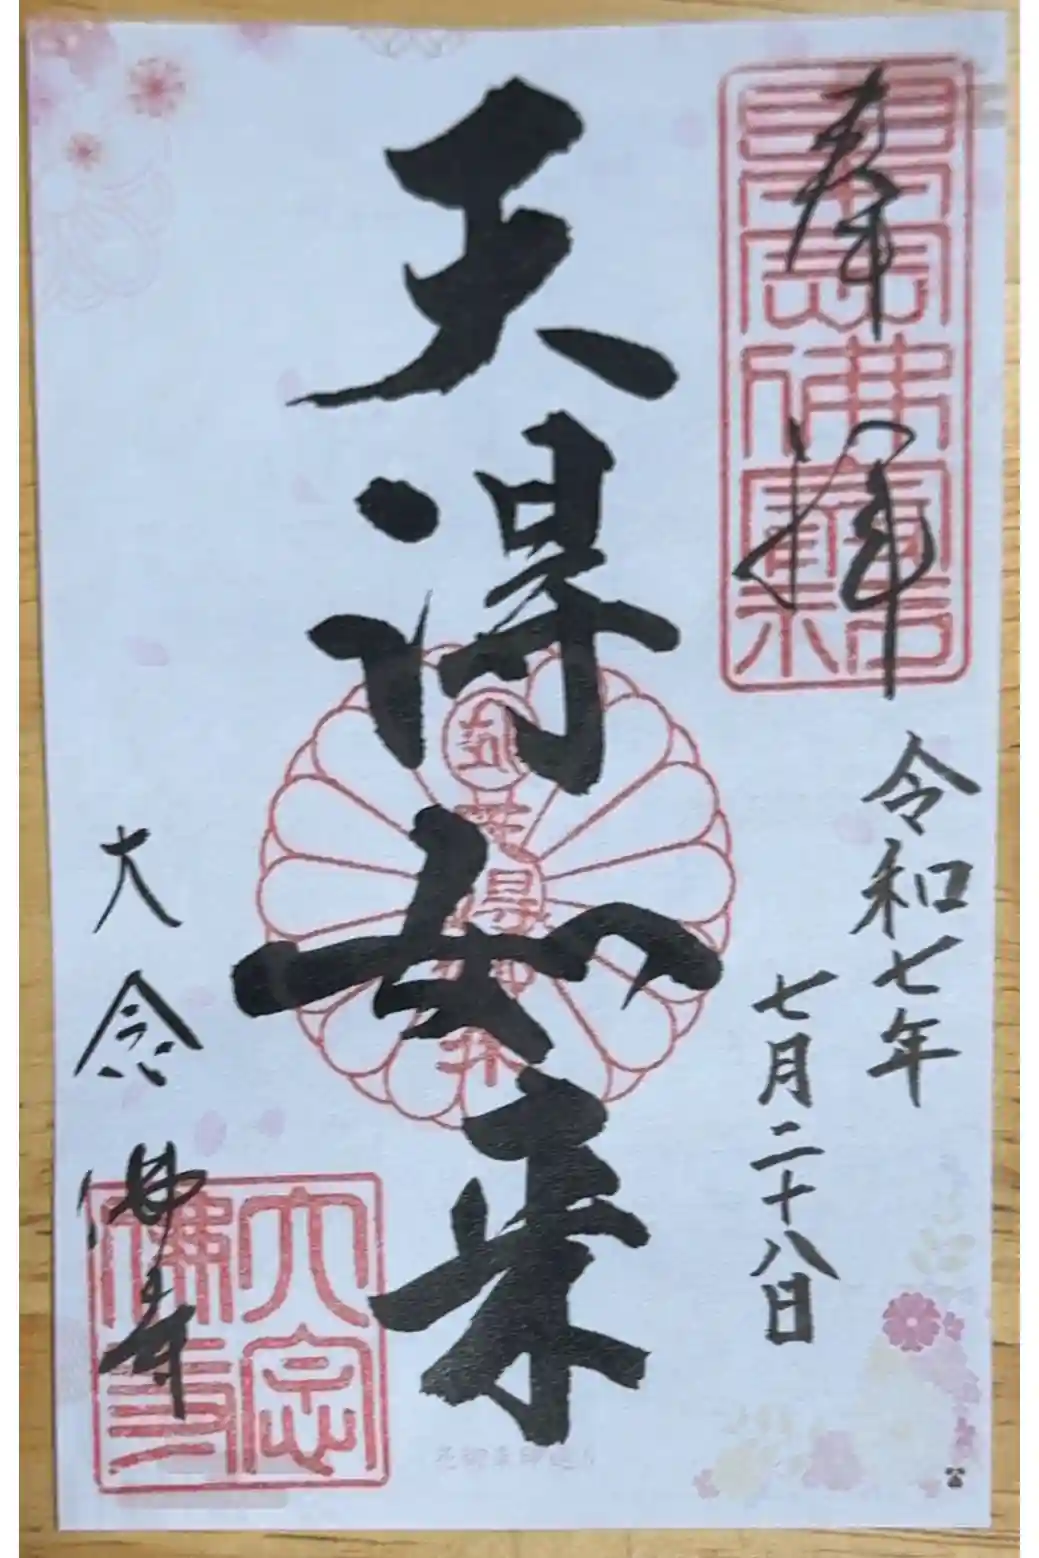 奉拝
令和七年
七月二十八日
天得如来
大念佛寺
大念
佛寺